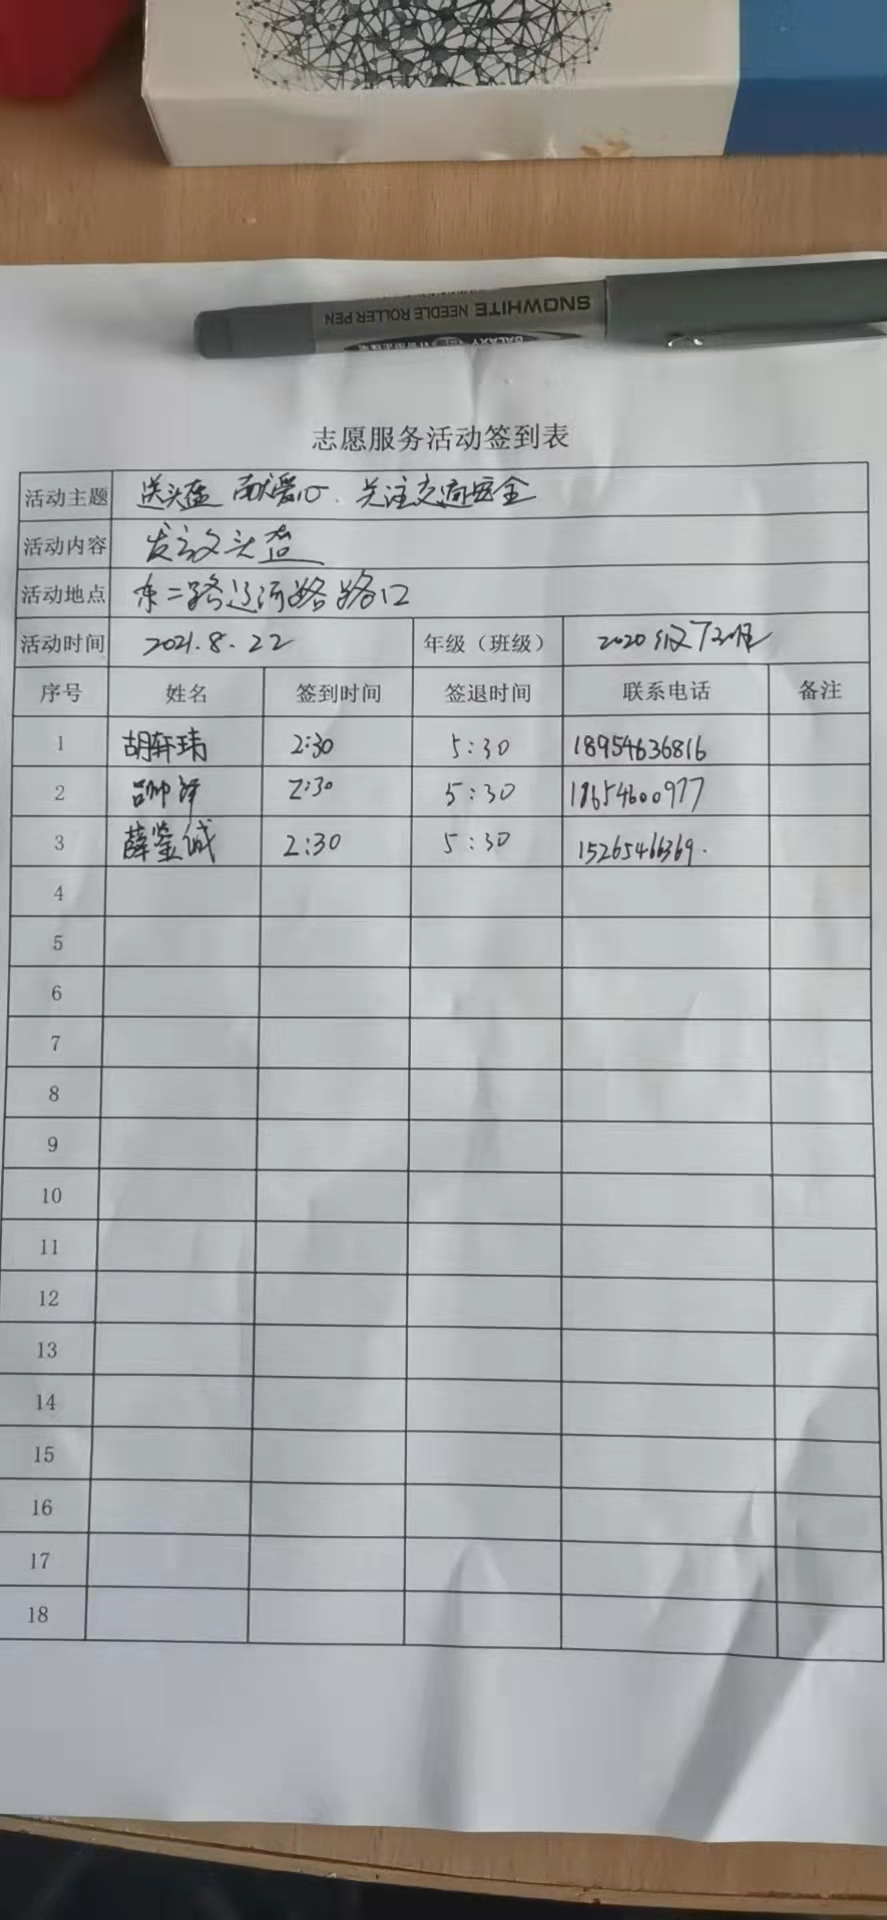 SNOWHITE NEEDLE ROLLER PEN
志愿服务活动签到表
活动主题 送头盔 献爱心、关注交通安全
活动内容 发放头盔
活动地点 东二路辽河路路口
活动时间 2021.8.22 年级（班级） 2020级7班
序号 姓名 签到时间 签退时间 联系电话 备注
1 胡轩玮 2:30 5:30 18954636816
2 吕帅泽 2:30 5:30 18654600977
3 薛鉴诚 2:30 5:30 15265466369.
4
5
6
7
8
9
10
11
12
13
14
15
16
17
18